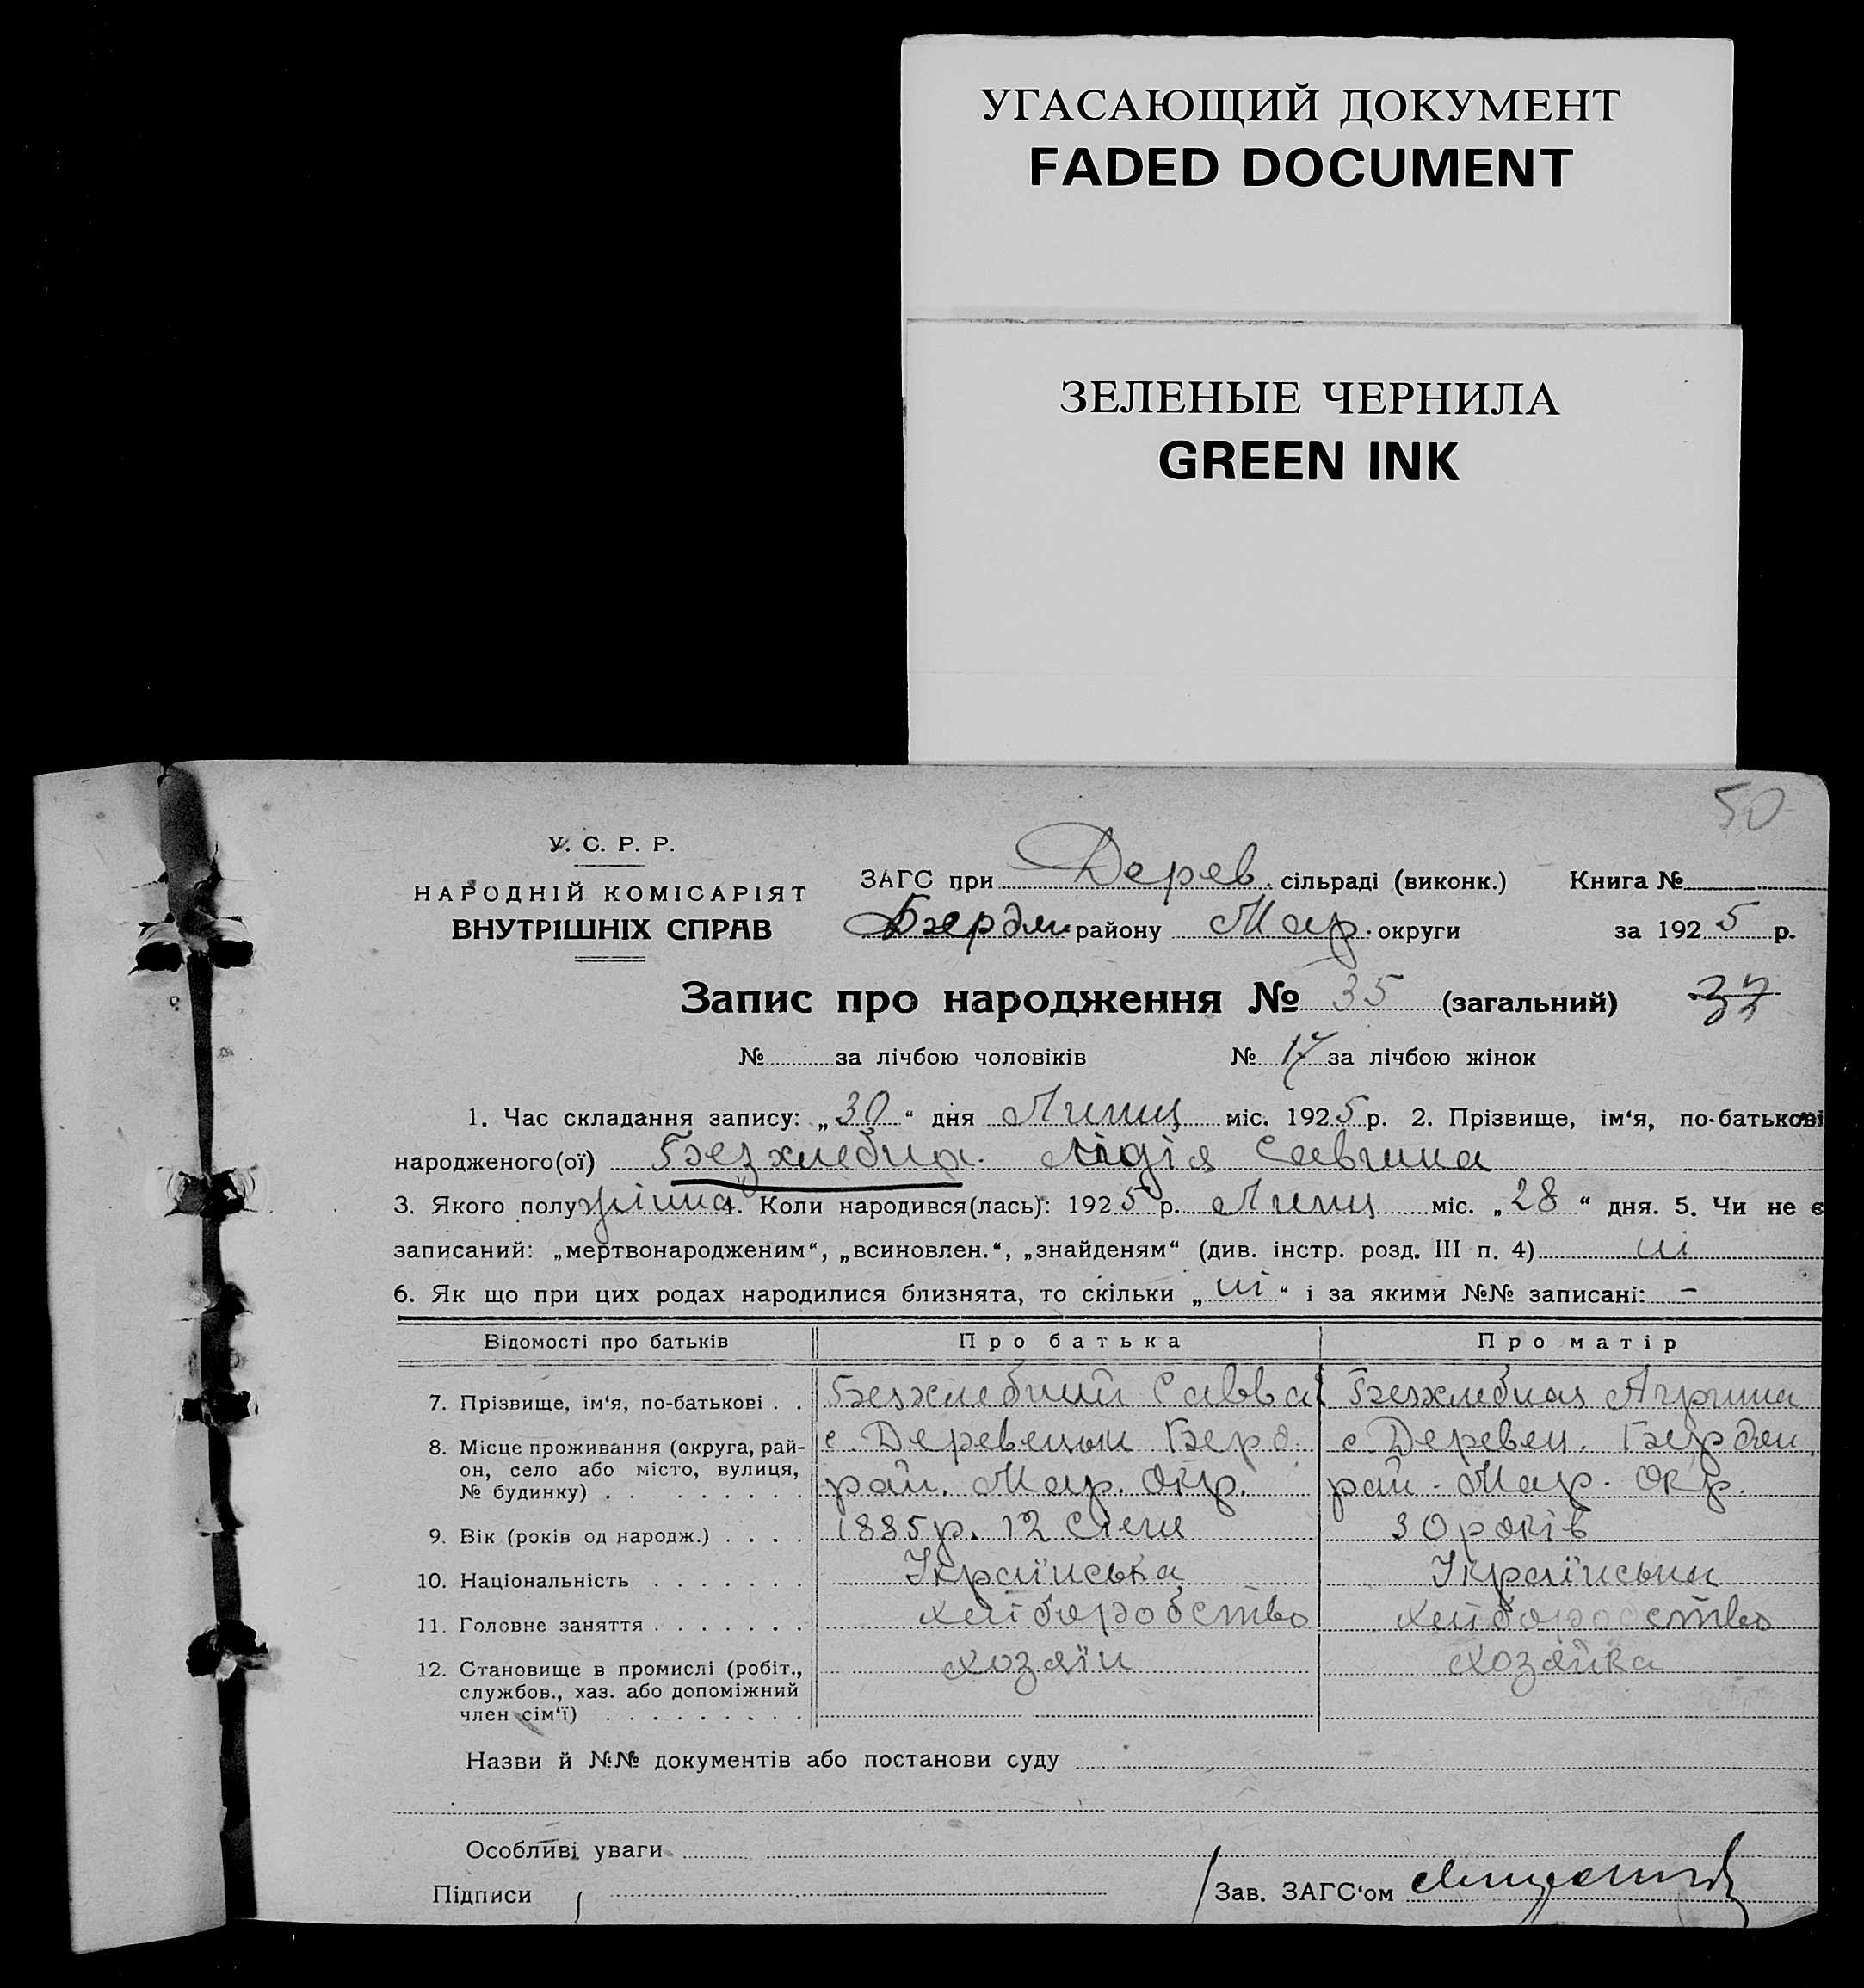 УГАСАЮЩИЙ ДОКУМЕНТ
FADED DOCUMENT
ЗЕЛЕНЫЕ ЧЕРНИЛА
GREEN INK
50
У. С. Р. Р.
НАРОДНІЙ КОМІСАРІЯТ
ВНУТРІШНІХ СПРАВ
ЗАГС при Дерев. сільраді (виконк.) Книга №
Бердян. району Мар. округи за 1925 р.
Запис про народження № 35 (загальний) 37
№ за лічбою чоловіків № 17 за лічбою жінок
1. Час складання запису: „30“ дня Липня міс. 1925 р. 2. Прізвище, ім‘я, по-батькові
народженого(ої) Безхлебна Лідія Саввична
3. Якого полу жіноча 4. Коли народився(лась): 1925 р. Липня міс. „28“ дня. 5. Чи не є
записаний: „мертвонародженим“, „всиновлен.“, „знайденям“ (див. інстр. розд. III п. 4) ні
6. Як що при цих родах народилися близнята, то скільки „ні“ і за якими №№ записані: –
Відомості про батьків Про батька Про матір
7. Прізвище, ім‘я, по-батькові . . Безхлебний Савва Безхлебная
8. Місце проживання (округа, рай- с. Деревецьки Берд. с. Деревец. Бердян.
он, село або місто, вулиця, рай. Мар. Окр. рай. Мар. Окр.
№ будинку)
9. Вік (років од народж.) . . . . 1885 р. 12 Січня 30 років
10. Національність . . . . . . . Українська Українська
11. Головне заняття . . . . . . . хліборобство хліборобство
12. Становище в промислі (робіт., хозяїн хозяйка
службов., хаз. або допоміжний
член сім‘ї) . . . . . . . . .
Назви й №№ документів або постанови суду
Особливі уваги
Підписи Зав. ЗАГС‘ом